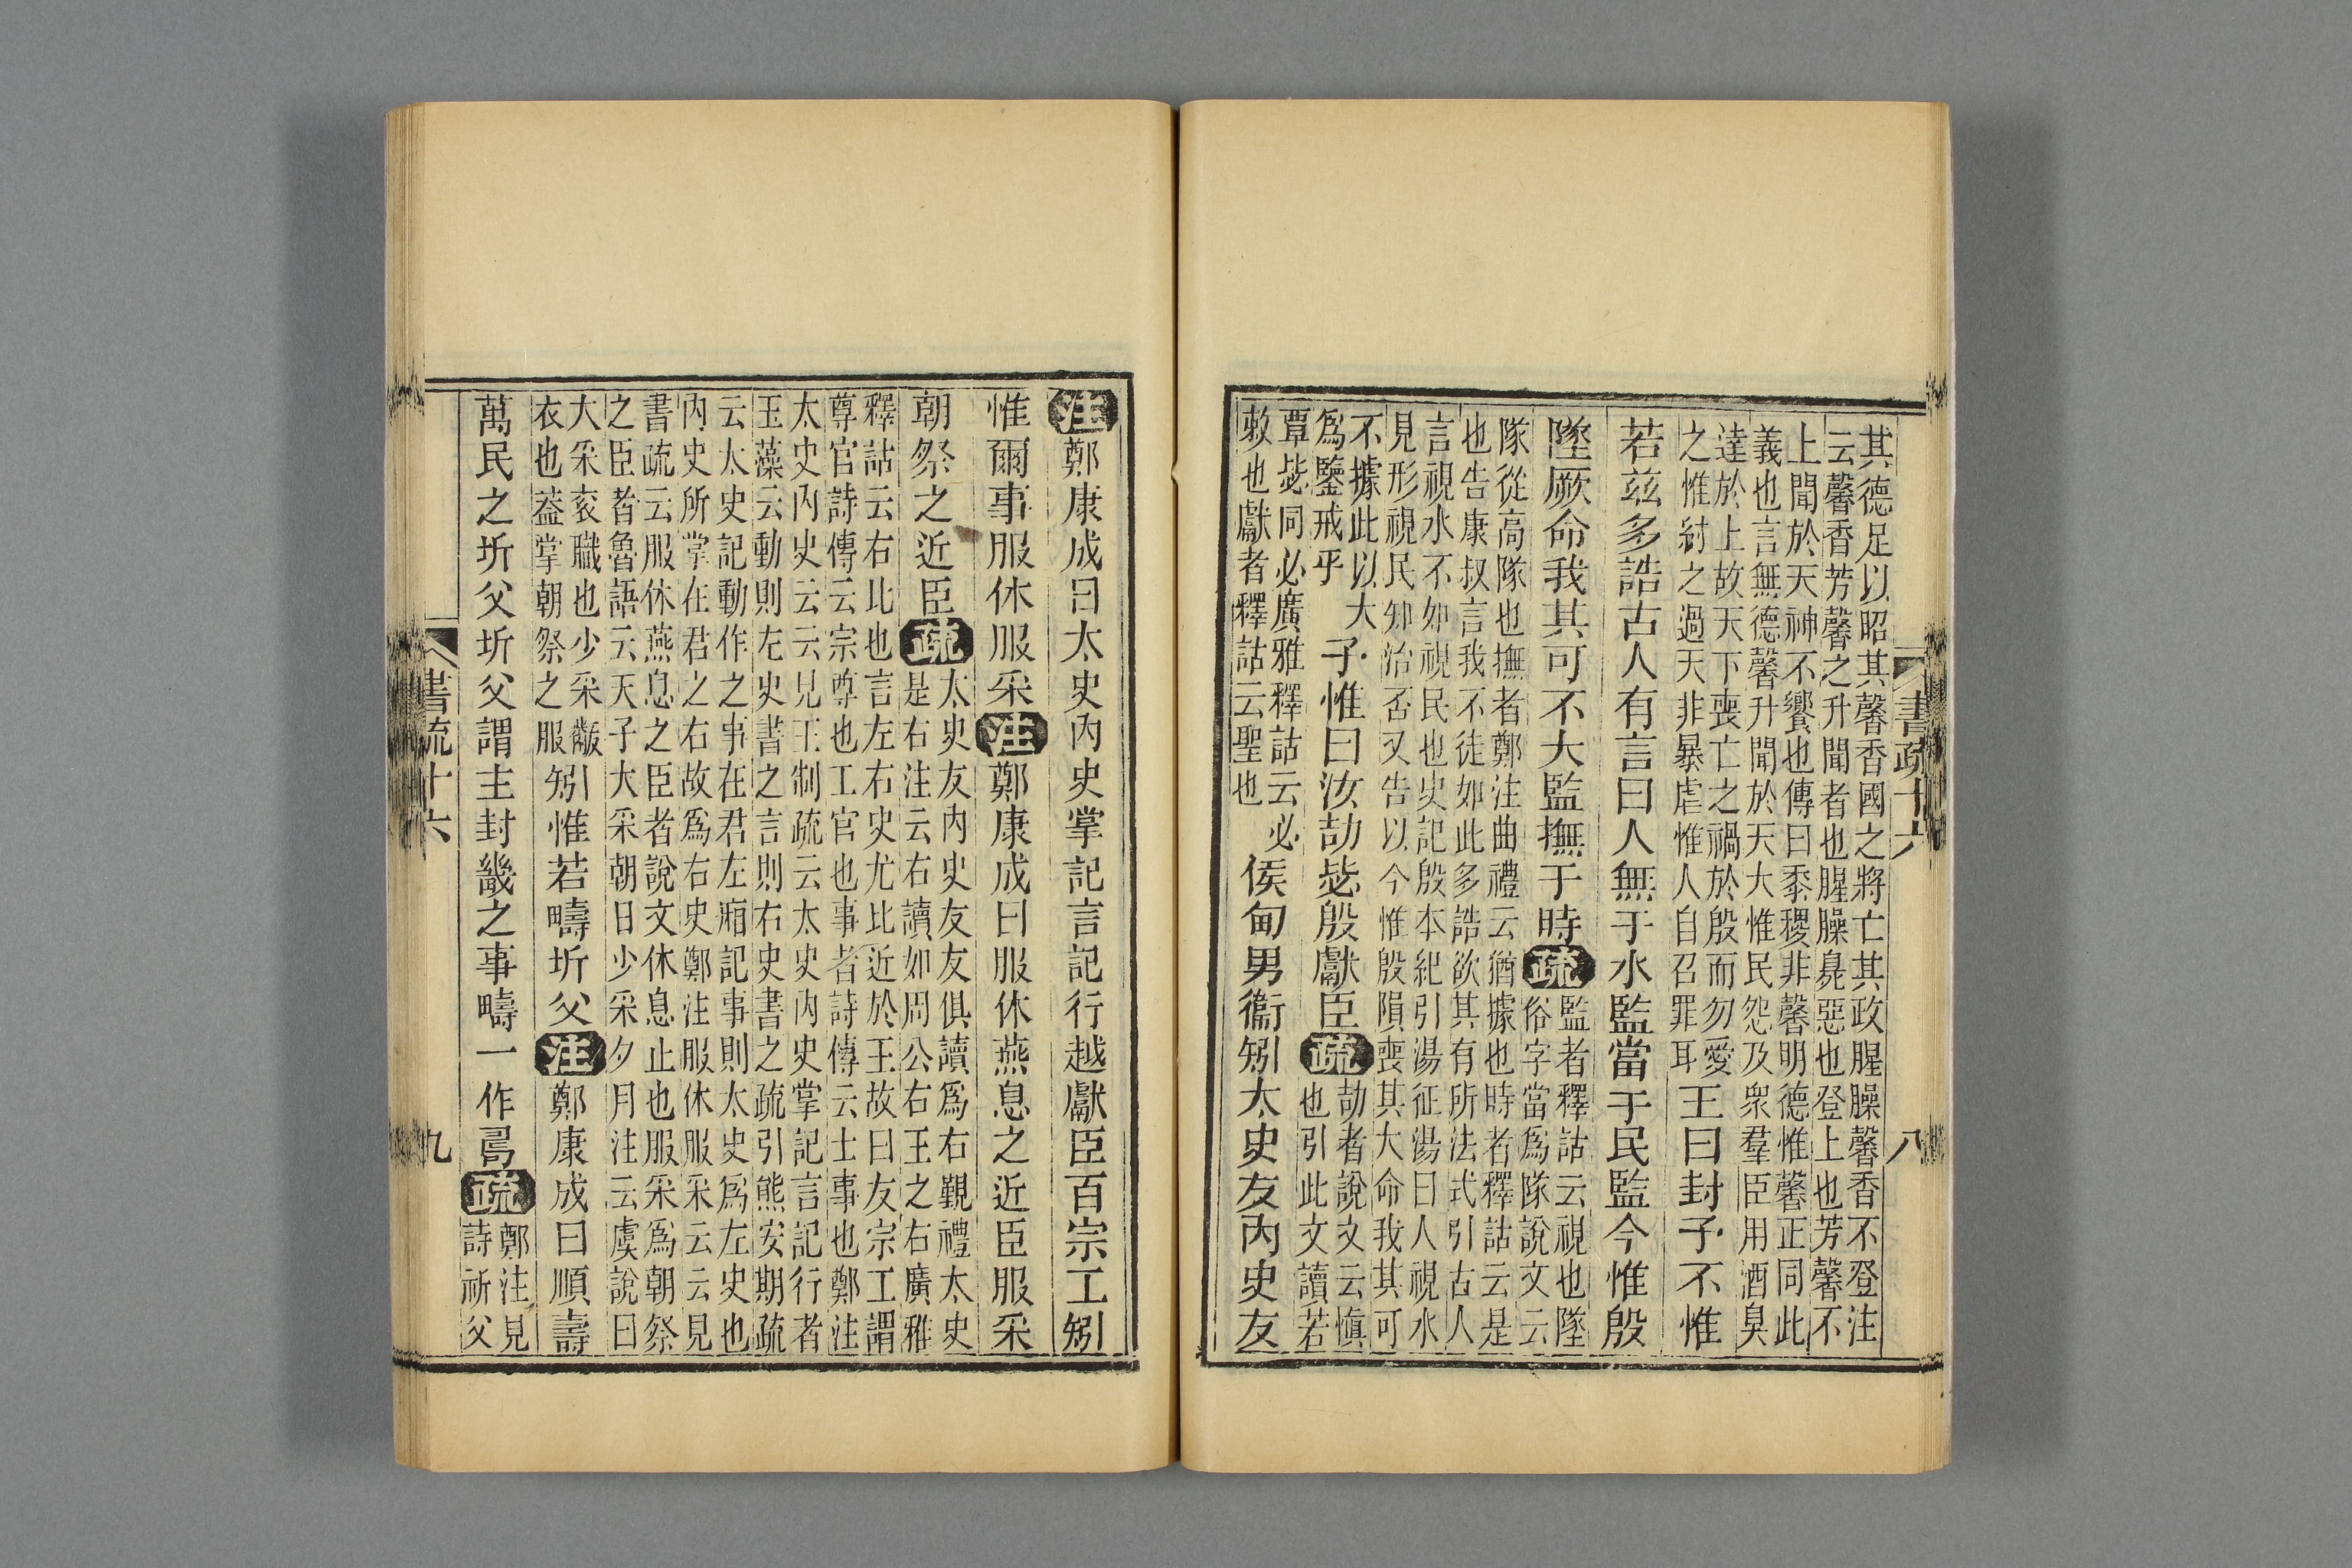 其德足以昭其馨香國之將亡其政腥臊馨香不登注
云馨香芳馨之升聞者也腥臊臭惡也登上也芳馨不
上聞於天神不饗也傳曰黍稷非馨明德惟馨正同此
義也言無德馨升聞於天大惟民怨及眾羣臣用酒臭
達於上故天下喪亡之禍於殷而勿愛
之惟紂之過天非暴虐惟人自召罪耳
王曰封予不惟
若茲多誥古人有言曰人無于水監當于民監今惟殷
墜厥命我其可不大監撫于時
疏
監者釋詁云視也墜
俗字當為隊說文云
隊從高隊也撫者鄭注曲禮云猶據也時者釋詁云是
也告康叔言我不徒如此多誥欲其有所法式引古人
言視水不如視民也史記殷本紀引湯征湯曰人視水
見形視民知治否又告以今惟殷隕喪其大命我其可
不據此以大
為鑒戒乎
予惟曰汝劼毖殷獻臣
疏
劼者說文云慎
也引此文讀若
覃毖同必廣雅釋詁云必
敕也獻者釋詁云聖也
侯甸男衞矧太史友內史友
書疏十六
八
注
鄭康成曰太史內史掌記言記行越獻臣百宗工矧
惟爾事服休服采
注
鄭康成曰服休燕息之近臣服采
朝祭之近臣
疏
太史友內史友友俱讀為右覲禮太史
是右注云右讀如周公右王之右廣雅
釋詁云右比也言左右史尤比近於王故曰友宗工謂
尊官詩傳云宗尊也工官也事者詩傳云士事也鄭注
太史內史云云見王制疏云太史內史掌記言記行者
玉藻云動則左史書之言則右史書之疏引熊安期疏
云太史記動作之事在君左廂記事則太史為左史也
內史所掌在君之右故為右史鄭注服休服采云云見
書疏云服休燕息之臣者說文休息止也服采為朝祭
之臣者魯語云天子大采朝日少采夕月注云虞說曰
大采袞職也少采黻
衣也蓋掌朝祭之服
矧惟若疇圻父
注
鄭康成曰順壽
萬民之圻父圻父謂主封畿之事疇一作𠷎
疏
鄭注見
詩祈父
書疏十六
九